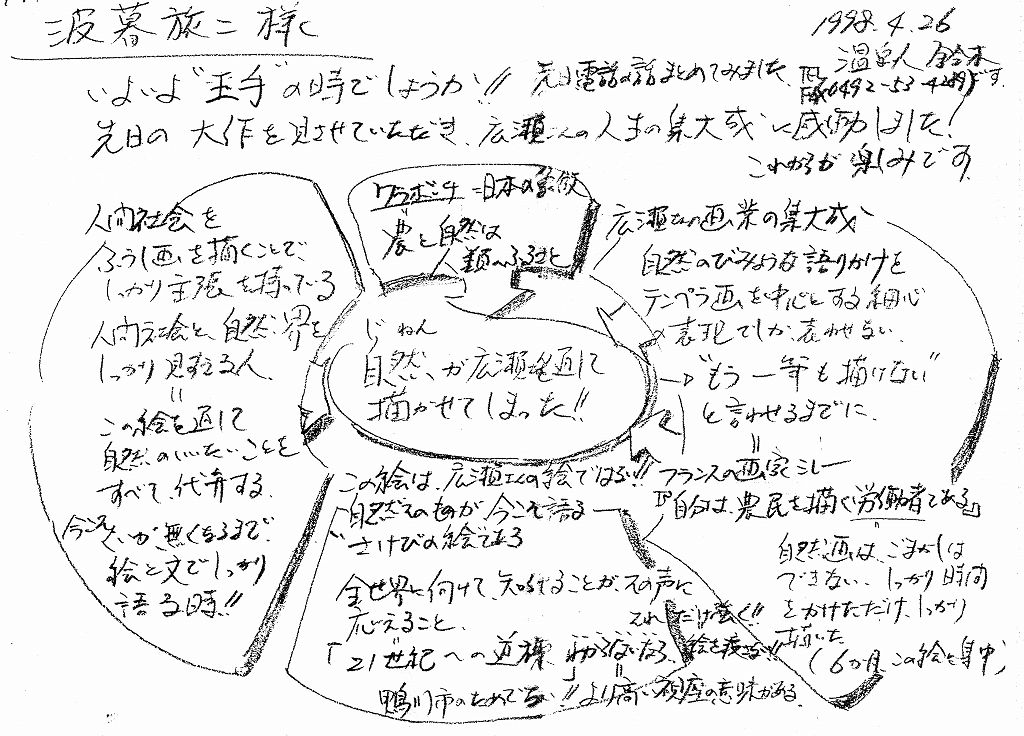 波暮旅二様
1998.4.26
温泉人 鈴木
TEL
FAX 0492-53-4289です。
いよいよ“玉手”の時でしょうか!! 先日電話の話まとめてみました
先日の 大作を見させていただき、広瀬さんの人生の集大成に感動しました!
これからが楽しみです
人間社会を
ふうし画を描くことで、
しっかり主張を持っている
人間社会と、自然界を
しっかり見すえる人、
=
この絵を通して
自然のいいたいことを
すべて、代弁する、
今こそ、が無くなるまで
絵と文でしっかり
語る時!!
ワラボッチ=日本の象徴
農と自然は
人類のふるさと
じねん
自然、が広瀬を通して
描かせてしまった!!
広瀬さんの画業の集大成
自然のびみような語りかけを
テンペラ画を中心とする細心
の表現でしか、表わせない、
→“もう一筆も描けない”
と言わせるまでに、
=
フランスの画家ミレー
『自分は、農民を描く労働者である』
自然画は、ごまかしは
できない、しっかり時間
をかけただけ、しっかり
描いた
(6か月この絵を集中)
この絵は、広瀬さんの絵ではない!!
自然そのものが今こそ語る
“さけびの絵である
全世界に向けて、知らせることが、その声に
応えること、
それだけ強く!!
「21世紀への道標、わからないなら、絵を渡さない!!」
鴨川市のためでない!! より高い視座の意味がある